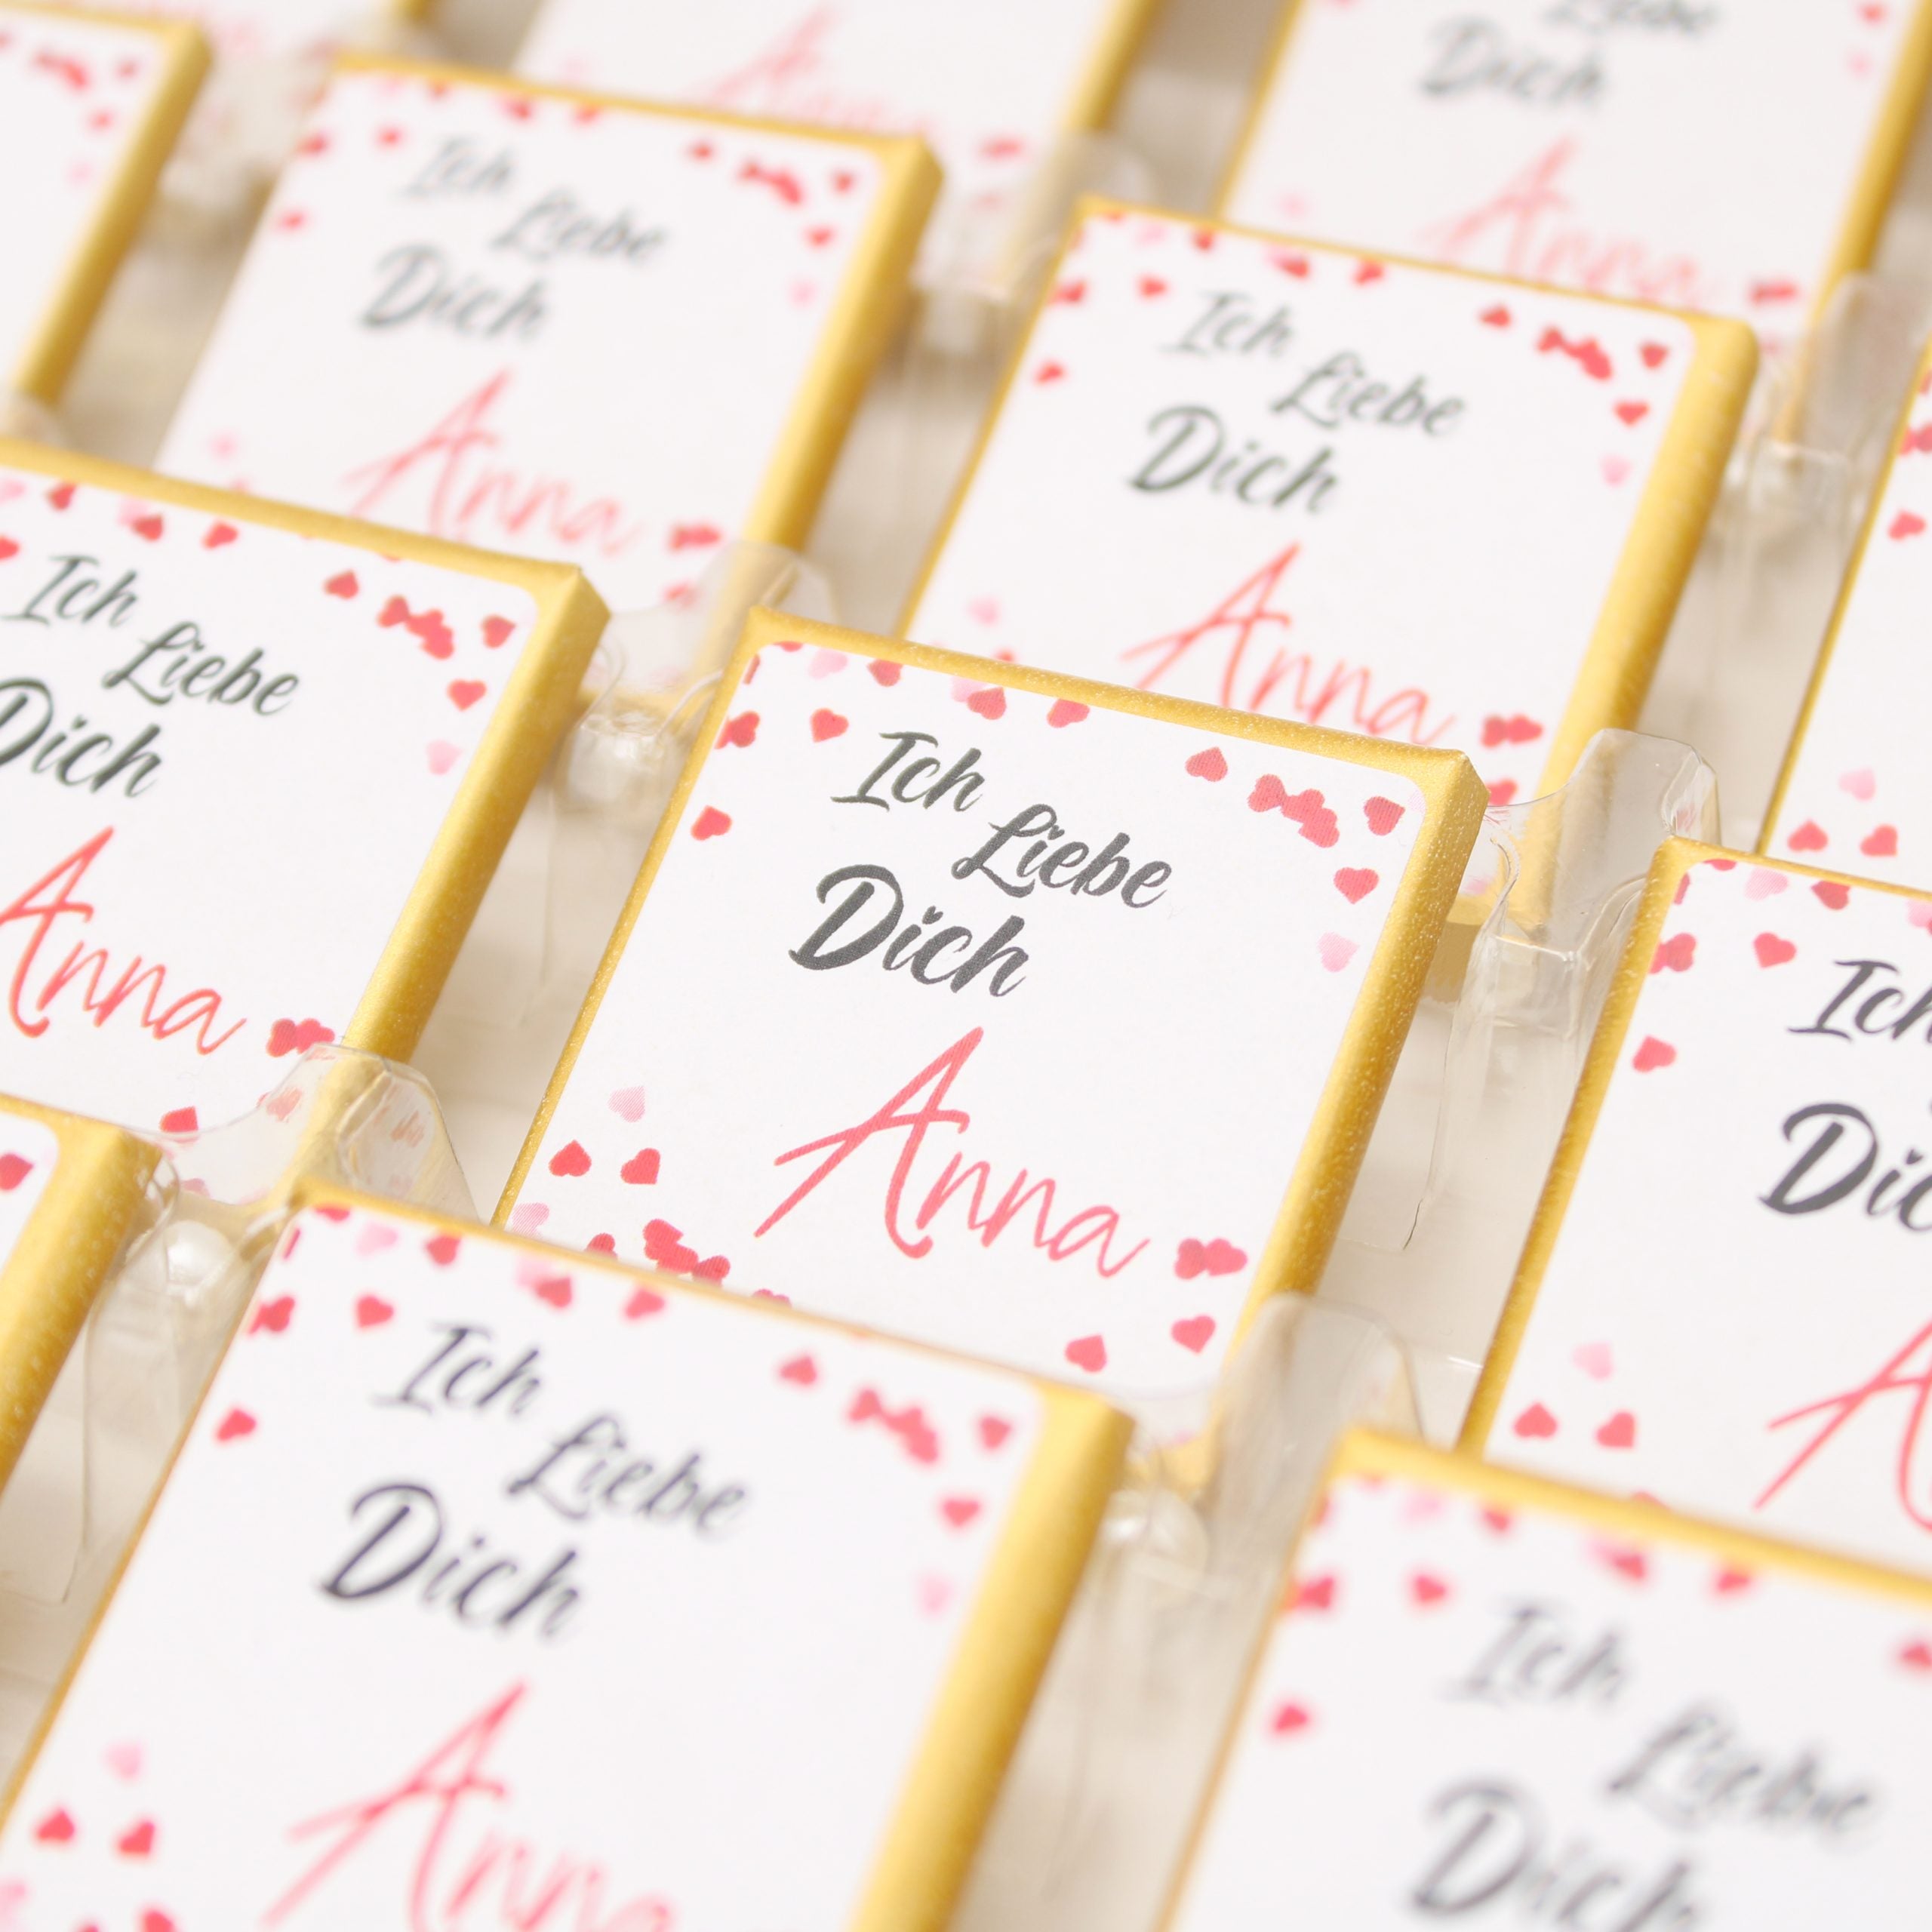 Anna
Liebe
Dich
Anna
Ich
Liebe
Dich
Anna
Ich
Liebe
Dich
Anna
Ich
Liebe
Dich
Anna
Ich
Liebe
Dich
Anna
Ich
Dich
Ich
Liebe
Dich
Anna
Ich
Liebe
Dich